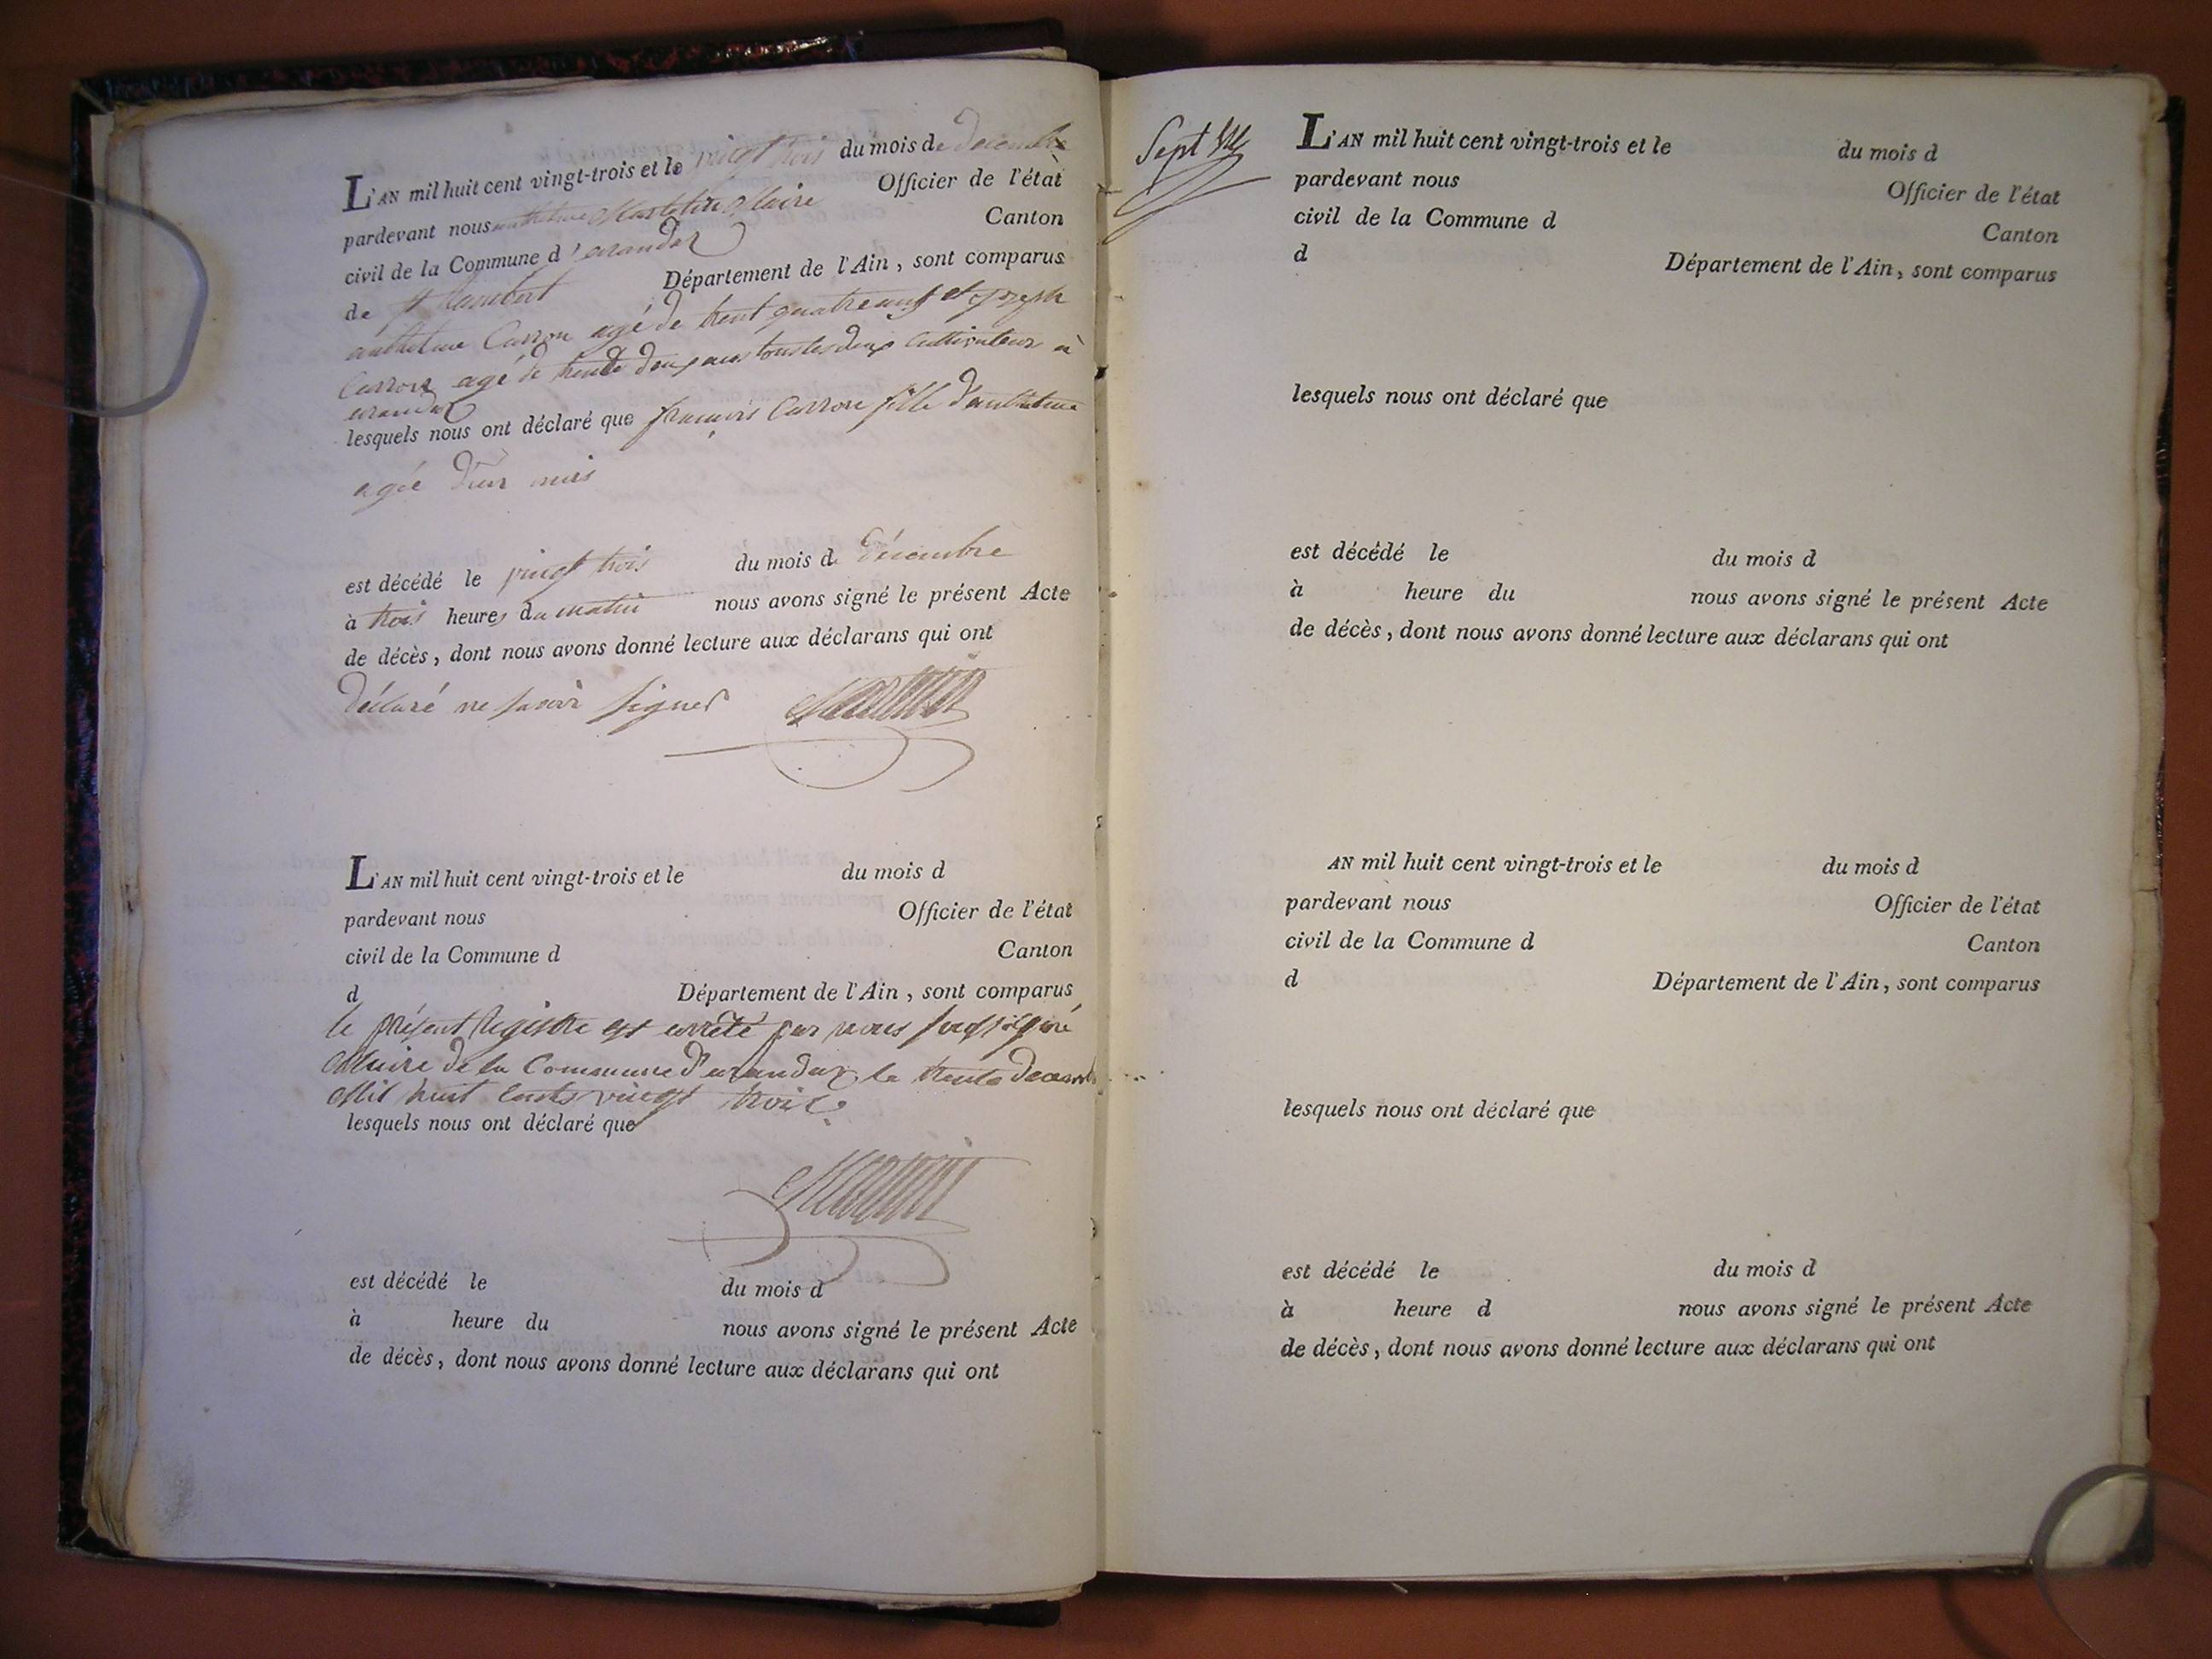 L'AN mil huit cent vingt-trois et le vingt trois du mois de decembre
pardevant nous anthelme Martelin Maire Officier de l'état
civil de la Commune d'arandas Canton
de St Rambert Département de l'Ain, sont comparus
anthelme Carron agé de trent quatre ans et joseph
Carron agé de trente deux ans tous les deux cultivateurs a
arandas
lesquels nous ont déclaré que francois Carron fille d'anthelme
agée d'un mois
est décédé le vingt trois du mois de décembre
à trois heures du matin nous avons signé le présent Acte
de décès, dont nous avons donné lecture aux déclarans qui ont
déclaré ne savoir signer
L'AN mil huit cent vingt-trois et le du mois d
pardevant nous Officier de l'état
civil de la Commune d Canton
d Département de l'Ain, sont comparus
le présent Registre est arreté par nous soussigné
Maire de la Commune d'arandas le trente decembre
Mil huit cents vingt trois
lesquels nous ont déclaré que
est décédé le du mois d
à heure du nous avons signé le présent Acte
de décès, dont nous avons donné lecture aux déclarans qui ont
Sept
L'AN mil huit cent vingt-trois et le du mois d
pardevant nous Officier de l'état
civil de la Commune d Canton
d Département de l'Ain, sont comparus
lesquels nous ont déclaré que
est décédé le du mois d
à heure du nous avons signé le présent Acte
de décès, dont nous avons donné lecture aux déclarans qui ont
AN mil huit cent vingt-trois et le du mois d
pardevant nous Officier de l'état
civil de la Commune d Canton
d Département de l'Ain, sont comparus
lesquels nous ont déclaré que
est décédé le du mois d
à heure d nous avons signé le présent Acte
de décès, dont nous avons donné lecture aux déclarans qui ont